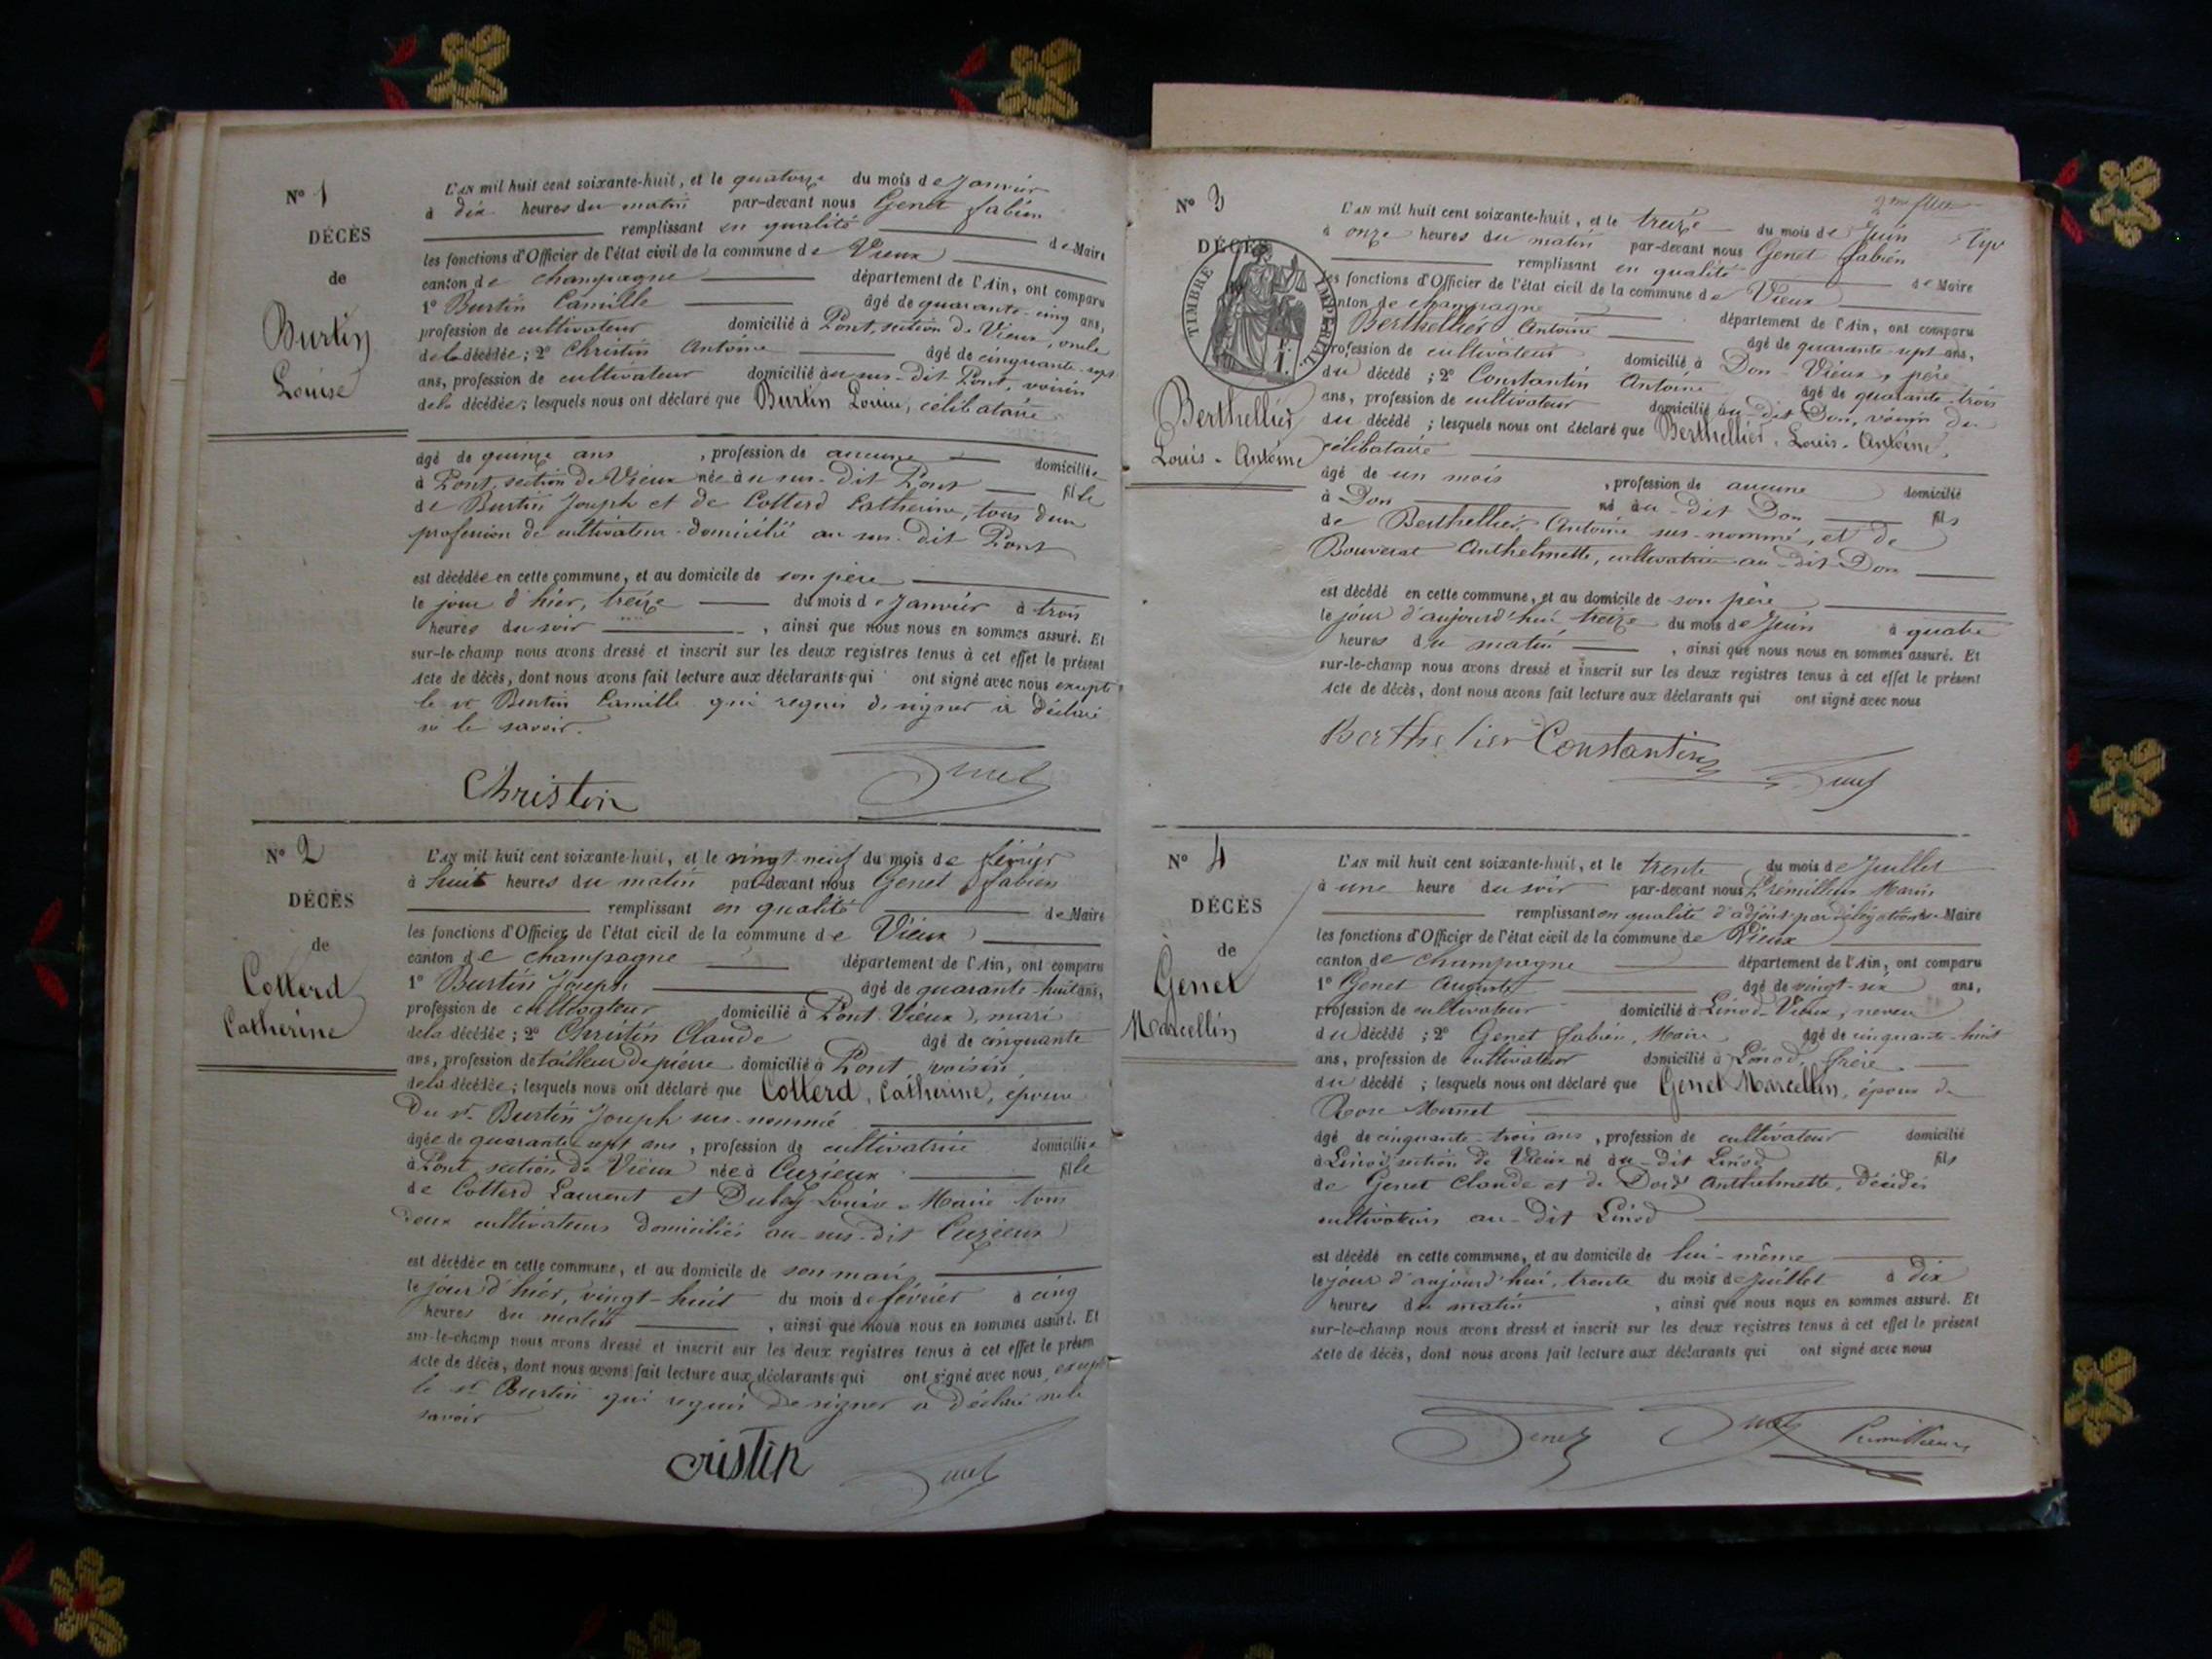 N° 1
DÉCÈS
de
Burtin
Louise
L'AN mil huit cent soixante-huit, et le quatorze du mois de Janvier
à dix heures du matin par-devant nous Genet fabien
remplissant en qualité de Maire
les fonctions d'Officier de l'état civil de la commune de Vieux
canton de champagne département de l'Ain, ont comparu
1° Burtin Camille âgé de quarante-cinq ans,
profession de cultivateur domicilié à Pont, section de Vieux, oncle
de la décédée; 2° Christin Antoine âgé de cinquante-sept
ans, profession de cultivateur domicilié au sus-dit Pont, voisin
de la décédée; lesquels nous ont déclaré que Burtin Louise, célibataire
âgé de quinze ans, profession de aucune domiciliée
à Pont, section de Vieux née à au sus-dit Pont fille
de Burtin Joseph et de Collerd Catherine, tous deux
profession de cultivateur domicilié au sus-dit Pont
est décédée en cette commune, et au domicile de son père
le jour d'hier, treize du mois de Janvier à trois
heures du soir, ainsi que nous nous en sommes assuré. Et
sur-le-champ nous avons dressé et inscrit sur les deux registres tenus à cet effet le présent
Acte de décès, dont nous avons fait lecture aux déclarants qui ont signé avec nous excepté
le st Burtin Camille qui requis de signer a déclaré
ne le savoir.
Christin Genet
N° 2
DÉCÈS
de
Collerd
Catherine
L'AN mil huit cent soixante-huit, et le vingt neuf du mois de février
à huit heures du matin par-devant nous Genet fabien
remplissant en qualité de Maire
les fonctions d'Officier de l'état civil de la commune de Vieux
canton de champagne département de l'Ain, ont comparu
1° Burtin Joseph âgé de quarante-huit ans,
profession de cultivateur domicilié à Pont Vieux, mari
de la décédée; 2° Christin Claude âgé de cinquante
ans, profession de tailleur de pierre domicilié à Pont, voisin
de la décédée; lesquels nous ont déclaré que Collerd, Catherine, épouse
du st Burtin Joseph sus-nommé
âgée de quarante sept ans, profession de cultivatrice domiciliée
à Pont, section de Vieux née à Cuzieux fille
de Collerd Laurent et Louise-Marie tous
deux cultivateurs domiciliés au-sus-dit Cuzieux
est décédée en cette commune, et au domicile de son mari
le jour d'hier, vingt-huit du mois de février à cinq
heures du matin, ainsi que nous nous en sommes assuré. Et
sur-le-champ nous avons dressé et inscrit sur les deux registres tenus à cet effet le présen
Acte de décès, dont nous avons fait lecture aux déclarants qui ont signé avec nous, excepté
le st Burtin qui requis de signer a déclaré ne le
savoir
cristin Genet
N° 3
DÉCÈS
TIMBRE IMPÉRIAL
1 F.
Berthellier
Louis-Antoine
L'AN mil huit cent soixante-huit, et le treize du mois de Juin
à onze heures du matin par-devant nous Genet fabien
remplissant en qualité de Maire
les fonctions d'Officier de l'état civil de la commune de Vieux
canton de champagne département de l'Ain, ont comparu
Berthellier Antoine âgé de quarante-sept ans,
profession de cultivateur domicilié à Don-Vieux, père
du décédé; 2° Constantin Antoine âgé de quarante-trois
ans, profession de cultivateur domicilié au-dit Don, voisin du
du décédé; lesquels nous ont déclaré que Berthellier, Louis-Antoine,
célibataire
âgé de un mois, profession de aucune domicilié
à Don né au-dit Don fils
de Berthellier, Antoine sus-nommé, et de
Bouverat Anthelmette, cultivatrice au-dit Don
est décédé en cette commune, et au domicile de son père
le jour d'aujourd'hui treize du mois de Juin à quatre
heures du matin, ainsi que nous nous en sommes assuré. Et
sur-le-champ nous avons dressé et inscrit sur les deux registres tenus à cet effet le présent
Acte de décès, dont nous avons fait lecture aux déclarants qui ont signé avec nous
Berthelier Constantin Genet
N° 4
DÉCÈS
de
Genet
Marcellin
L'AN mil huit cent soixante-huit, et le trente du mois de Juillet
à une heure du soir par-devant nous Prémillieux Marin
remplissant en qualité d'adjoint par délégation de Maire
les fonctions d'Officier de l'état civil de la commune de Vieux
canton de champagne département de l'Ain, ont comparu
1° Genet Auguste âgé de vingt-six ans,
profession de cultivateur domicilié à Linod-Vieux, neveu
du décédé; 2° Genet fabien, Maire âgé de cinquante-huit
ans, profession de cultivateur domicilié à Linod, frère
du décédé; lesquels nous ont déclaré que Genet Marcellin, époux de
âgé de cinquante-trois ans, profession de cultivateur domicilié
à Linod section de Vieux né au-dit Linod fils
de Genet Claude et de Anthelmette, décédés
cultivateurs au-dit Linod
est décédé en cette commune, et au domicile de lui-même
le jour d'aujourd'hui, trente du mois de Juillet à dix
heures du matin, ainsi que nous nous en sommes assuré. Et
sur-le-champ nous avons dressé et inscrit sur les deux registres tenus à cet effet le présent
Acte de décès, dont nous avons fait lecture aux déclarants qui ont signé avec nous
Genet Genet Premillieux